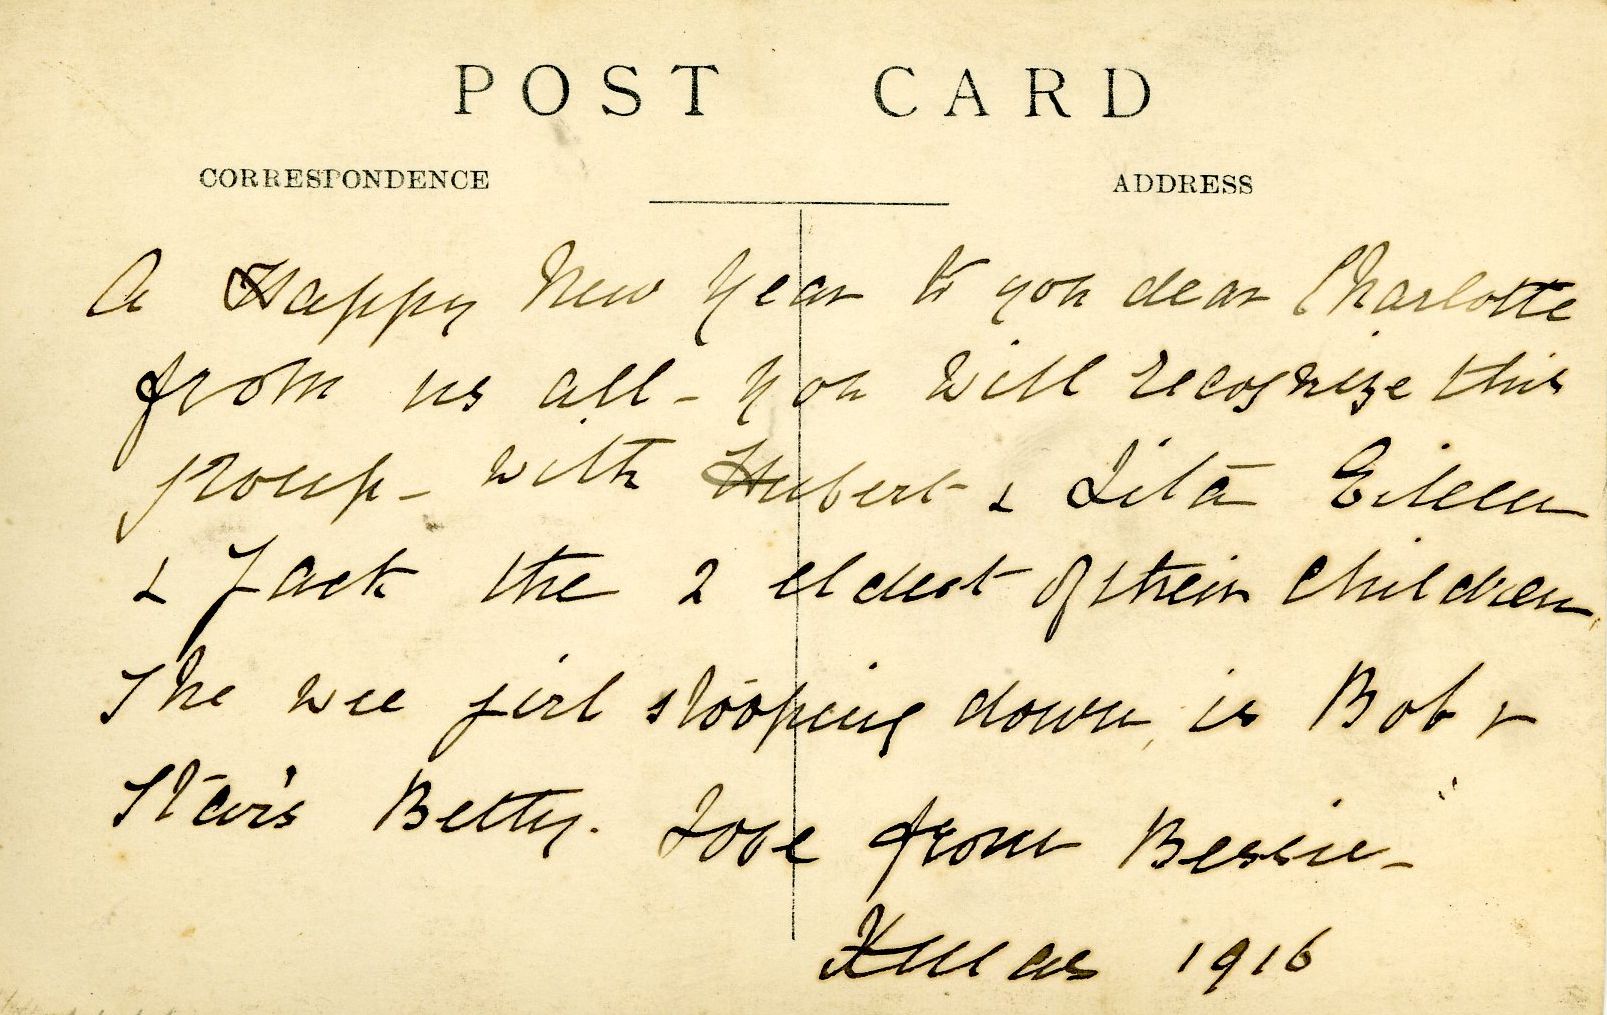 POST CARD
CORRESPONDENCE
ADDRESS
A Happy New Year to you dear Charlotte
from us all - you will recognize this
group - with Hubert & Lita Eileen
& Jack the 2 eldest of their children,
The wee girl stooping down, is Bob &
Betty. Love from Bessie -
Xmas 1916